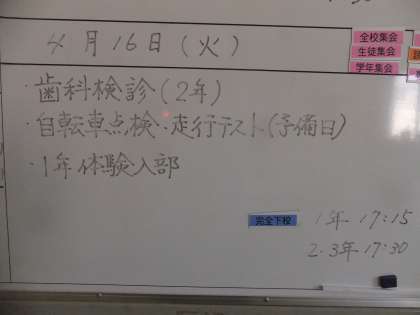 4月16日(火)
全校集会
生徒集会
学年集会
・歯科検診(2年)
・自転車点検・走行テスト(予備日)
・1年体験入部
完全下校
1年 17:15
2.3年 17:30